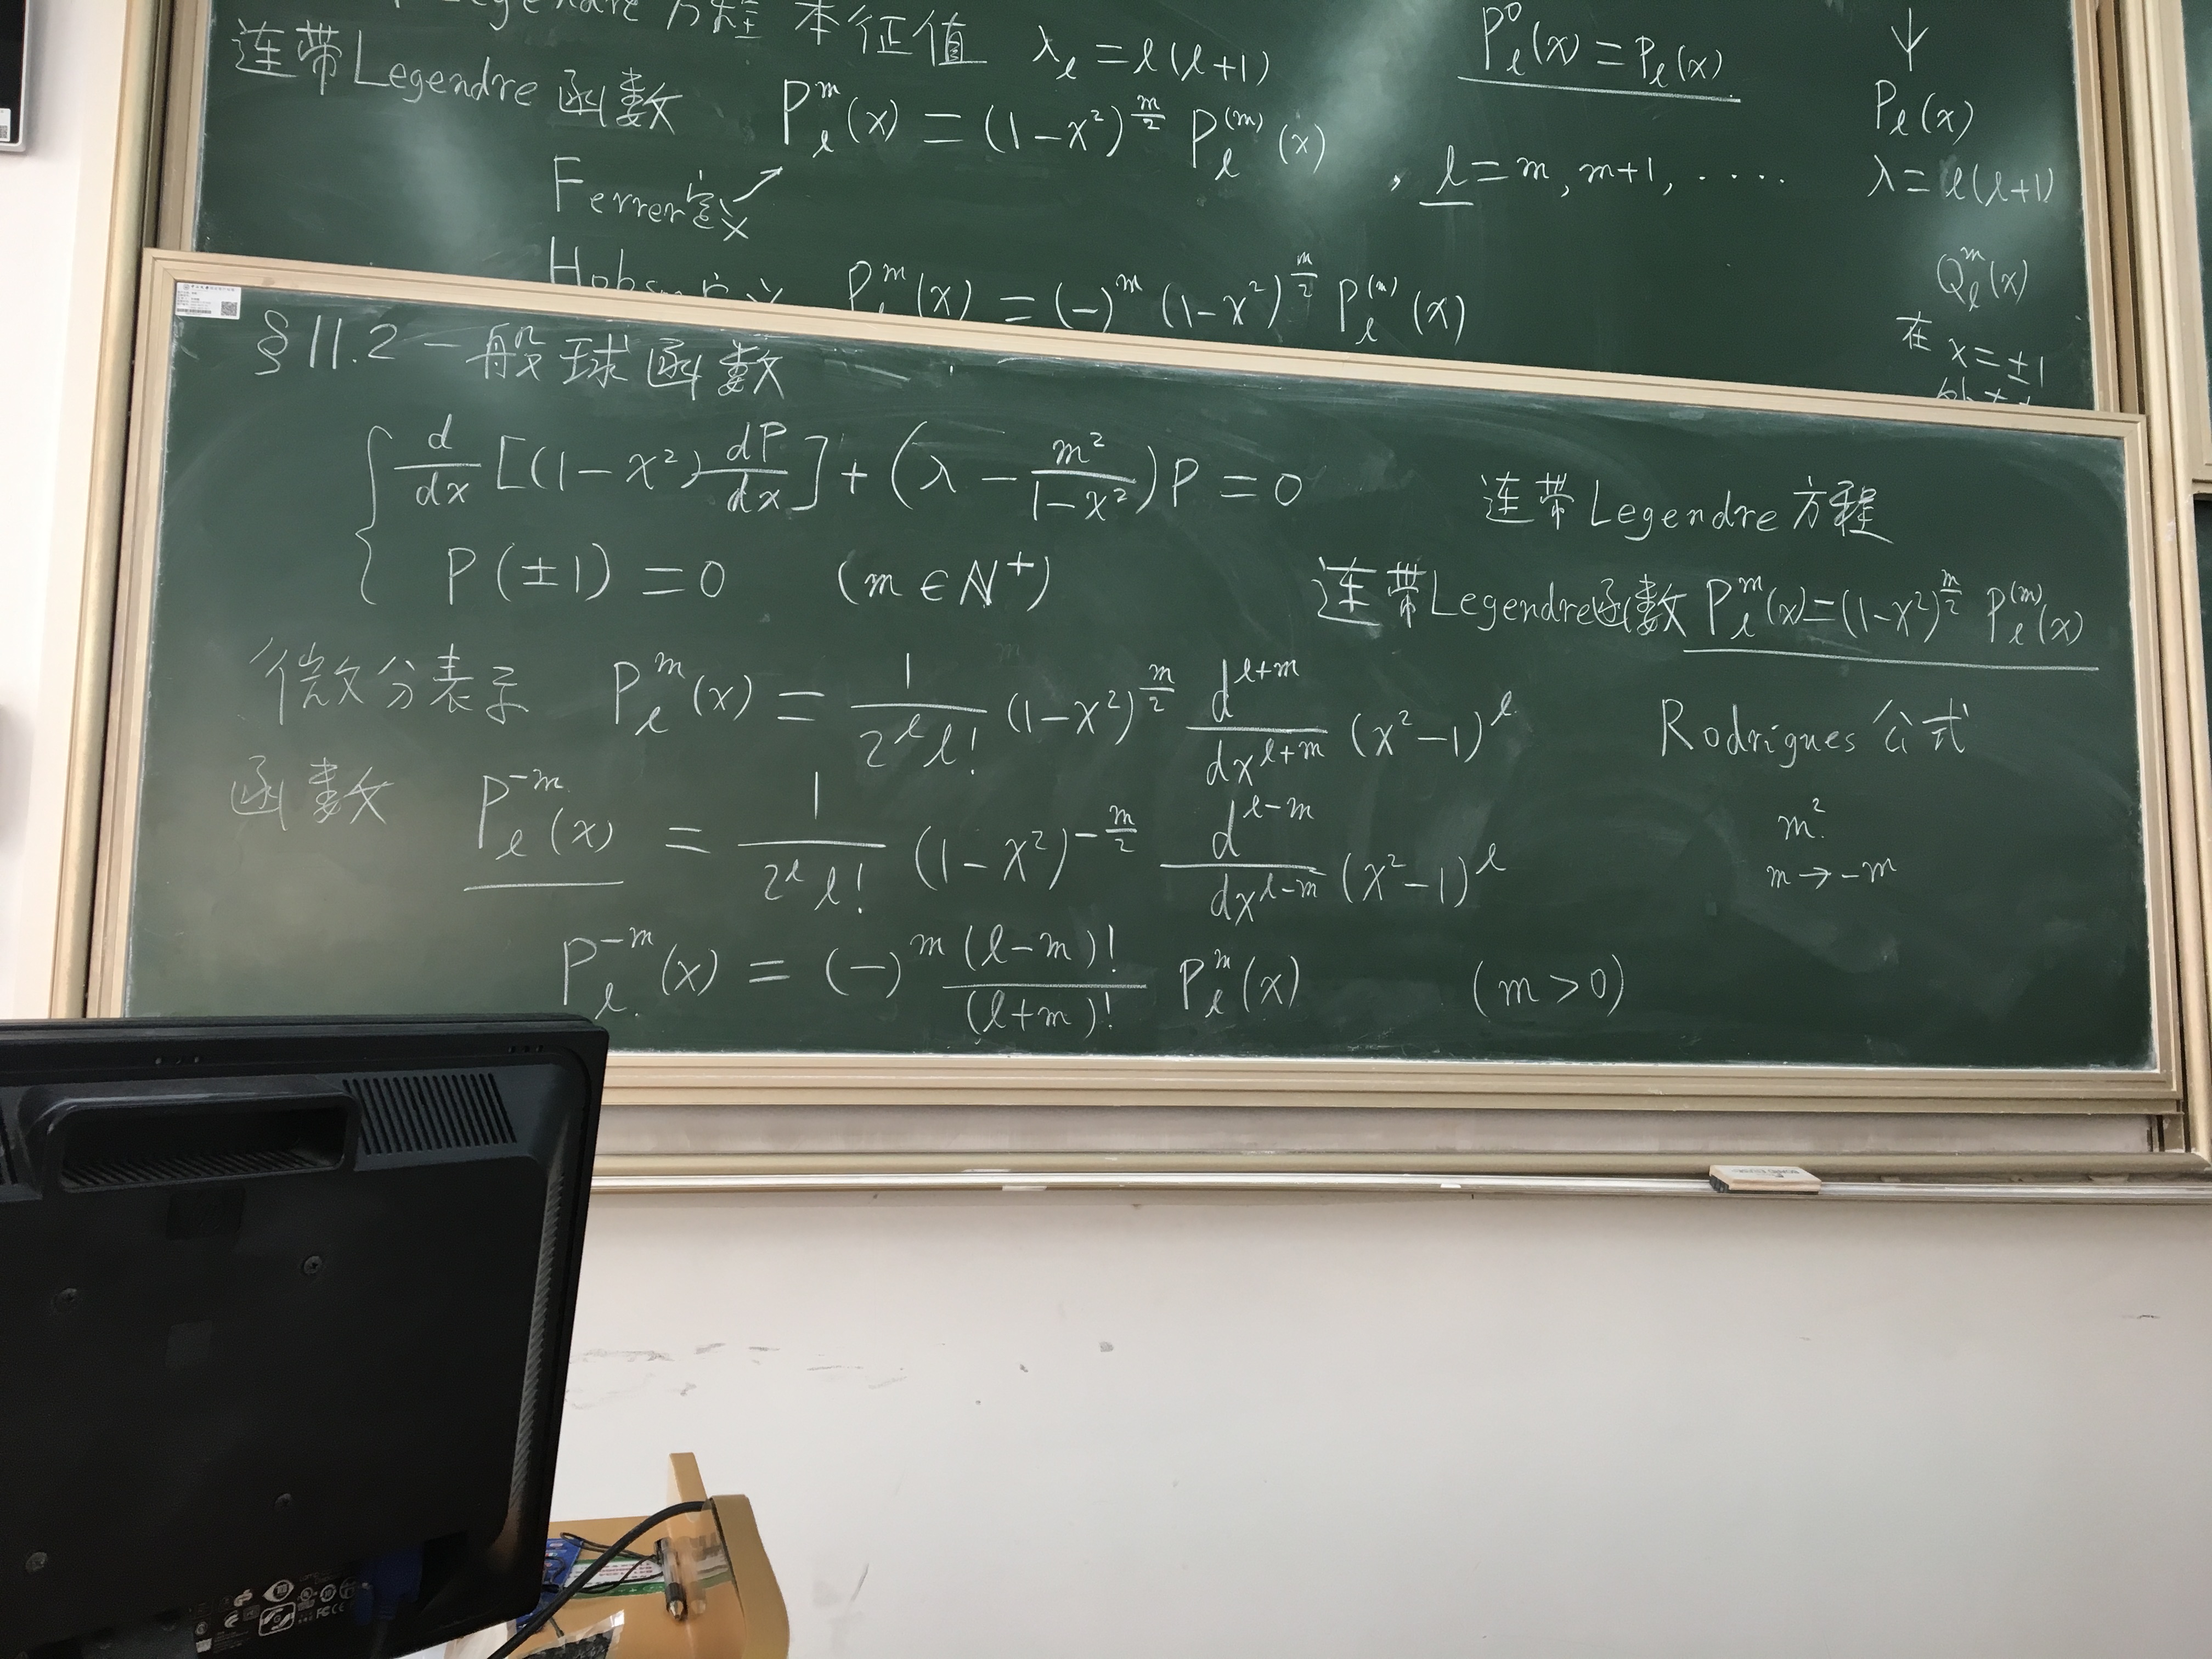 Legendre 方程 本征值 λ_l = l(l+1)
P_l^0(x) = P_l(x)
连带Legendre 函数 P_l^m(x) = (1-x²)^{m/2} P_l^{(m)}(x) , l = m, m+1, ·····
Ferrer定义
P_l^m(x) = (-)^m (1-x²)^{m/2} P_l^{(m)}(x)
↓
P_l(x)
λ = l(l+1)
Q_l^m(x)
在 x = ±1
§11.2 一般球函数
d/dx [(1-x²) dP/dx] + (λ - m²/(1-x²)) P = 0
连带Legendre方程
P(±1) = 0 (m ∈ N⁺)
连带Legendre函数 P_l^m(x) = (1-x²)^{m/2} P_l^{(m)}(x)
微分表示 P_l^m(x) = 1/(2^l l!) (1-x²)^{m/2} d^{l+m}/dx^{l+m} (x²-1)^l
Rodrigues 公式
函数 P_l^{-m}(x) = 1/(2^l l!) (1-x²)^{-m/2} d^{l-m}/dx^{l-m} (x²-1)^l
m²
m → -m
P_l^{-m}(x) = (-)^m (l-m)!/(l+m)! P_l^m(x) (m > 0)